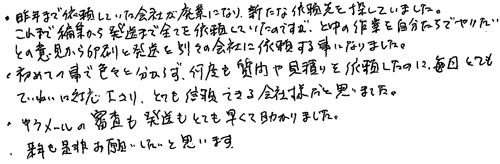 ・昨年まで依頼していた会社が廃業になり、新たな依頼先を探していました。
これまで編集から発送まで全てを依頼していたのですが、途中の作業を自分たちでやりたい
との意見から印刷と発送を引きの会社に依頼する事になりました。
・初めての事で色々と分からず、何度も質問や見積りを依頼したのに、毎回とても
ていねいに対応下さり、とても信頼できる会社様だと思いました。
・ゆうメールの審査も発送もとても早くて助かりました。
・来年も是非お願いしたいと思います